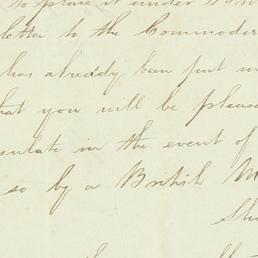 to place it under
letter to the Commodor
has already been put un
hat you will be please
sulate in the event of
so by a British M
Sh